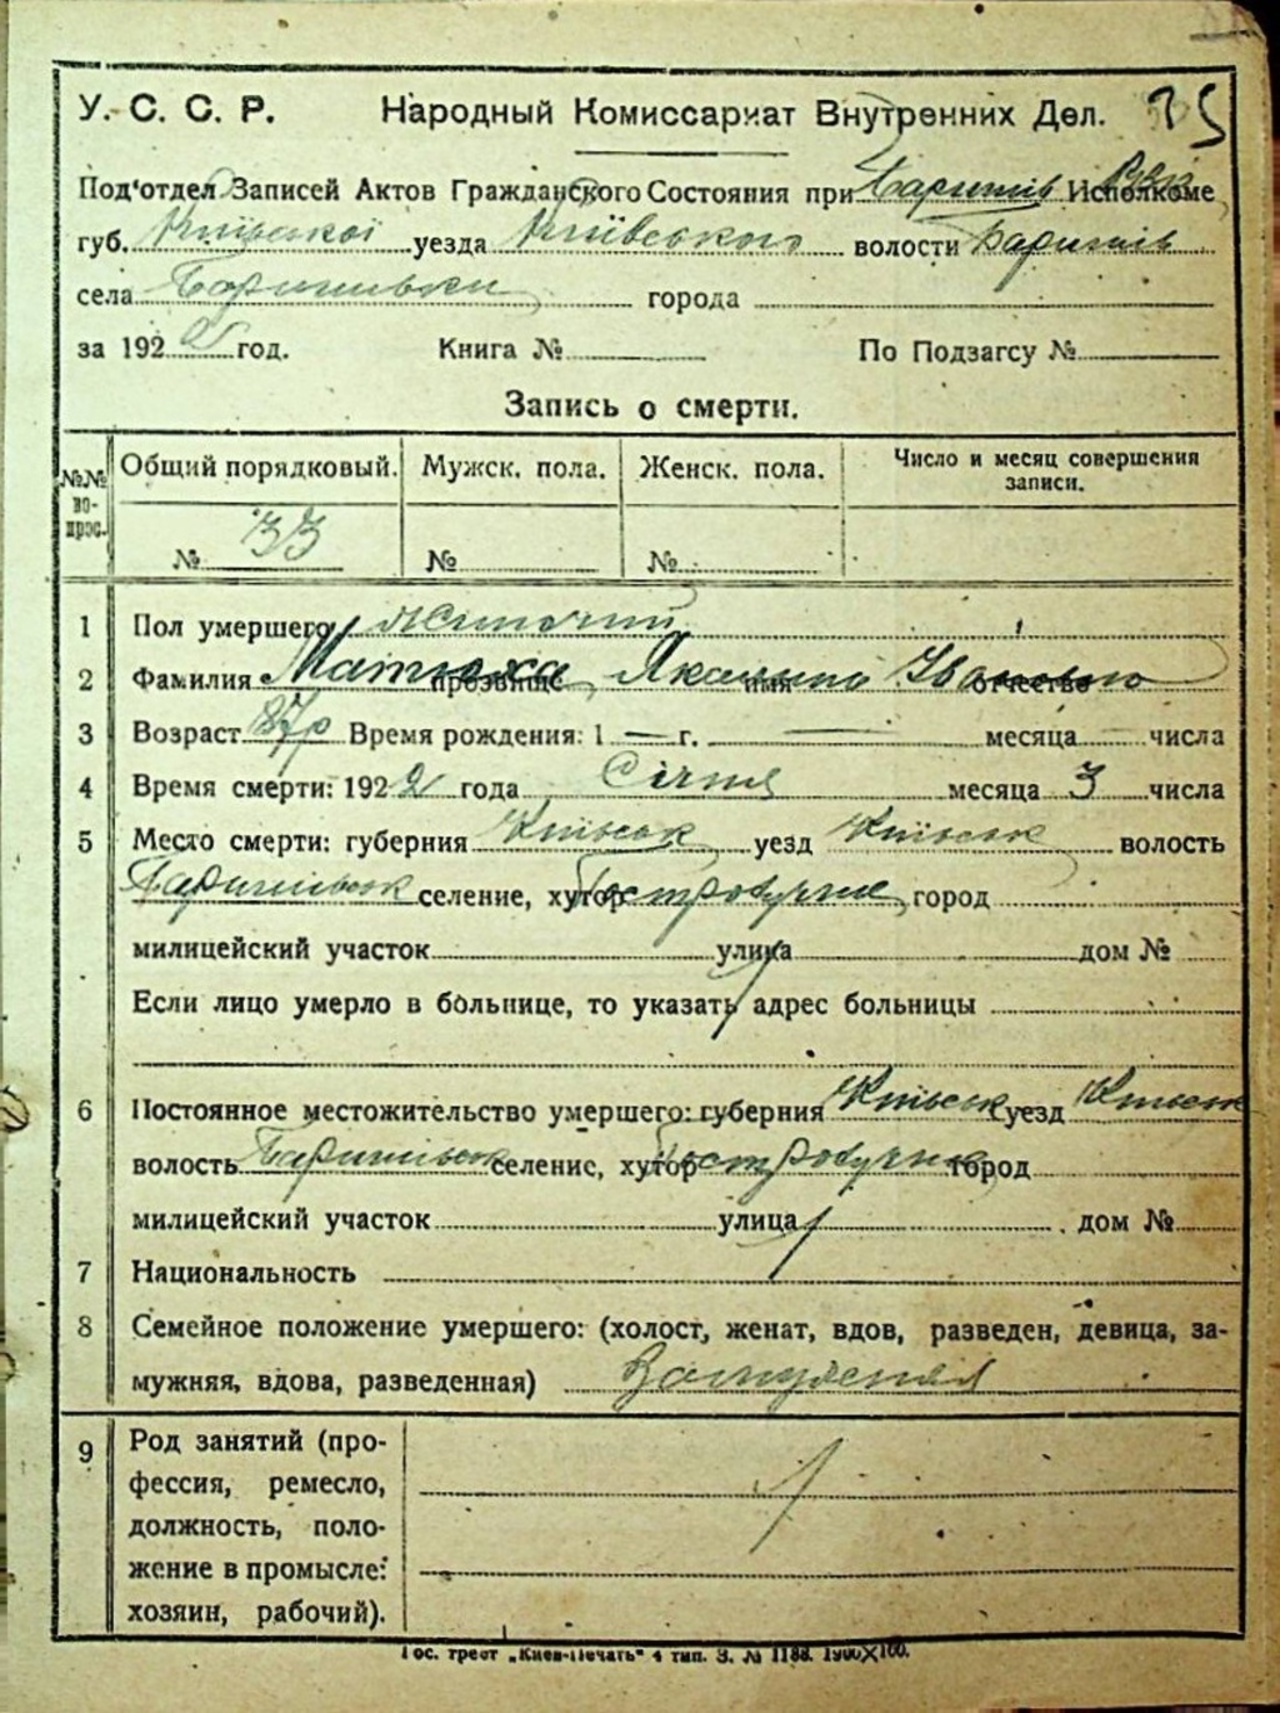 У. С. С. Р. Народный Комиссариат Внутренних Дел. 75
Под'отдел Записей Актов Гражданского Состояния при Баришів Исполкоме
губ. Київської уезда Київського волости Баришів
села Баришівки города
за 192 год. Книга № По Подзагсу №
Запись о смерти.
№№ вопрос. Общий порядковый. Мужск. пола. Женск. пола. Число и месяц совершения записи.
№ 33 № №
1 Пол умершего жиночий
2 Фамилия Матюха прозвище имя Івановна отчество
3 Возраст 87р Время рождения: 1 — г. — месяца числа
4 Время смерти: 1922 года Січня месяца 3 числа
5 Место смерти: губерния Київськ уезд Київськ волость
Баришівськ селение, хутор город
милицейский участок улица дом №
Если лицо умерло в больнице, то указать адрес больницы
6 Постоянное местожительство умершего: губерния Київськ уезд Київськ
волость Баришівськ селение, хутор город
милицейский участок улица дом №
7 Национальность
8 Семейное положение умершего: (холост, женат, вдов, разведен, девица, за-
мужняя, вдова, разведенная) Замужняя
9 Род занятий (про-
фессия, ремесло,
должность, поло-
жение в промысле:
хозяин, рабочий).
Гос. трест „Киев-Печать" 4 тип. З. № 1188. 1900×100.